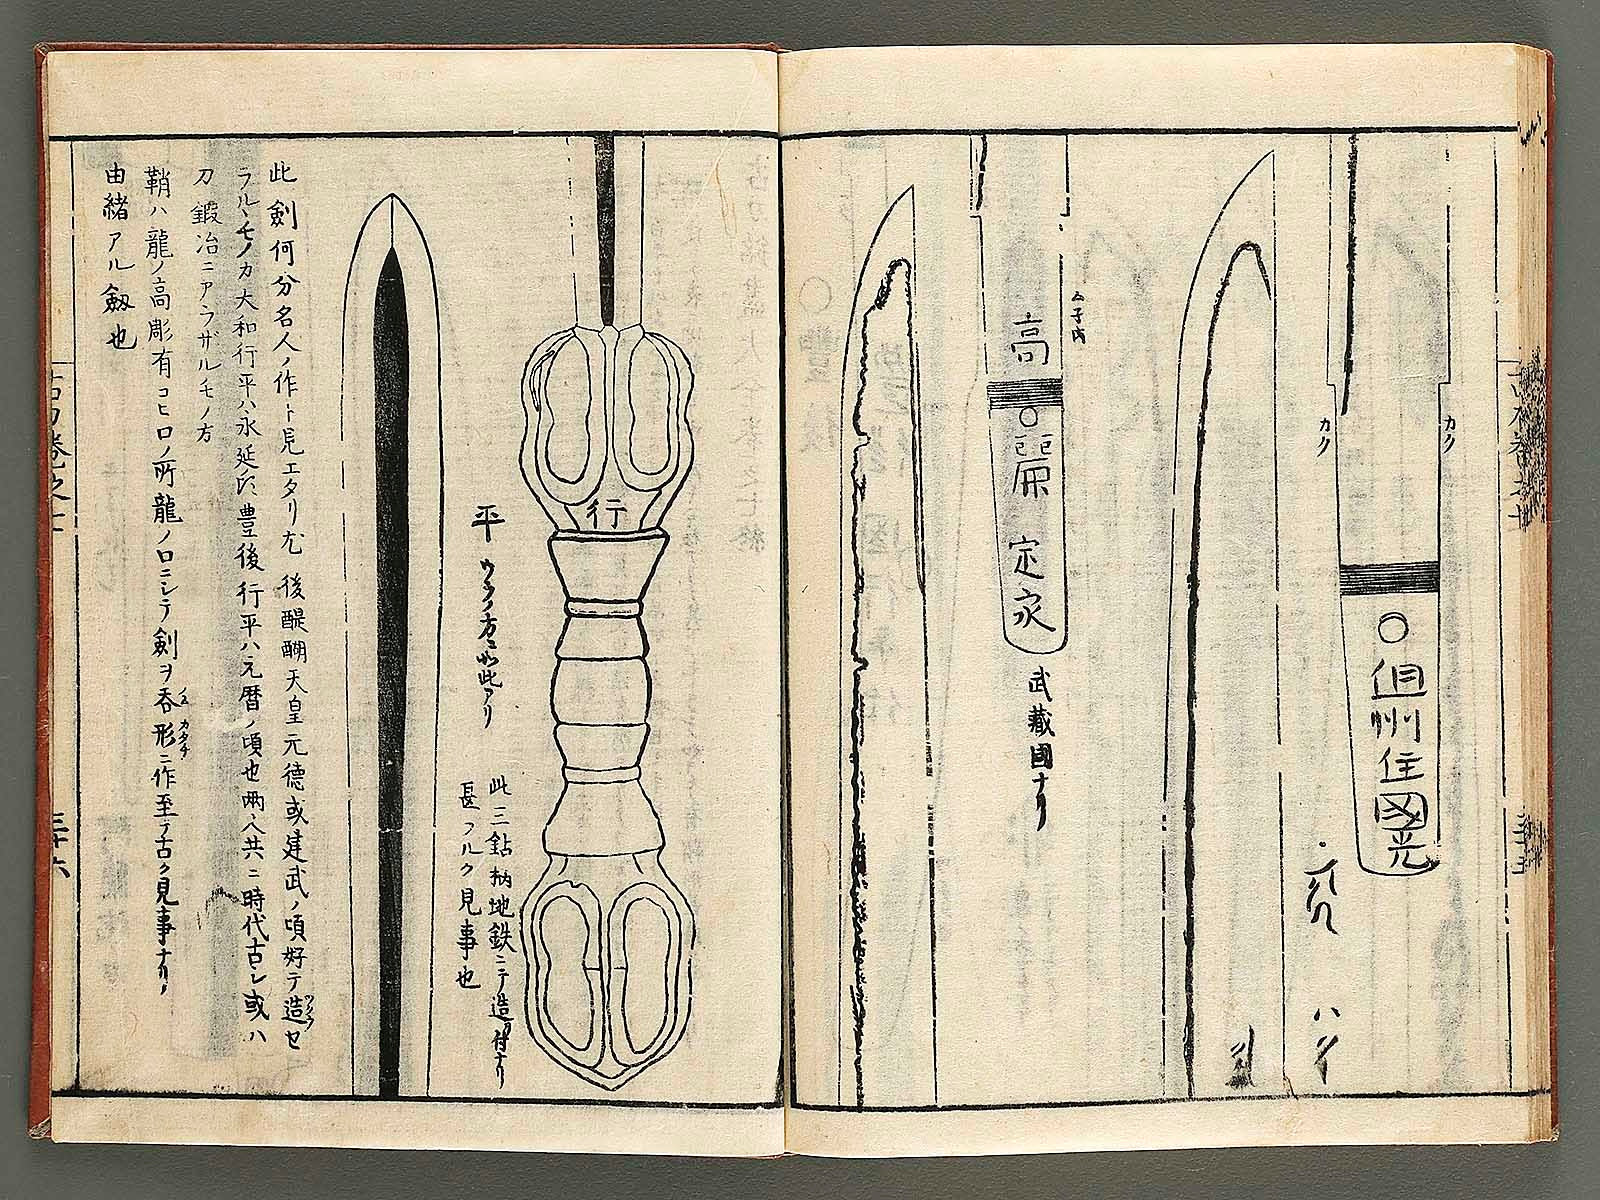 カク
カク
○但州住国光
ハタ
ム子肉
高○麗定家
武蔵國ナリ
行
平
ウラノ方ニ如此アリ
此三鈷柄地鉄ニテ造付ナリ
甚フルク見事也
此剣何分名人ノ作ト見エタリ尤後醍醐天皇元徳或建武ノ頃好テ造セ
ラルヽモノカ大和行平ハ永延頃豊後行平ハ元暦ノ頃也両人共ニ時代古シ或ハ
刀鍛冶ニアラザルモノ方
鞘ハ龍ノ高彫有コヒロノ所龍ノ口ニシテ剣ヲ呑形ニ作至テ古ク見事ナリ
由緒アル剱也
古刀巻之七
三十六